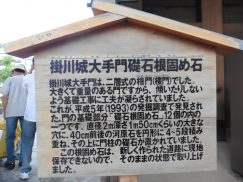 掛川城大手門礎石根固め石
掛川城大手門は、二層式の櫓門(楼門)でした。
大きくて重量のある門ですから、傾いたりしない
よう基礎工事に工夫が凝らされていました。
これが、平成5年(1993)の発掘調査で発見され
た、門の基礎部分「礎石根固め石」12個の内の
一つです。直径2m深さ1m50cmくらいの大きな
穴に、40cm前後の河原石を円形に4～5段積み
重ね、その上に門柱の礎石が置かれていました
この根固め石は、新しく作られた道路に現地
保存できないので、そのままの状態で取り上げ
ました。